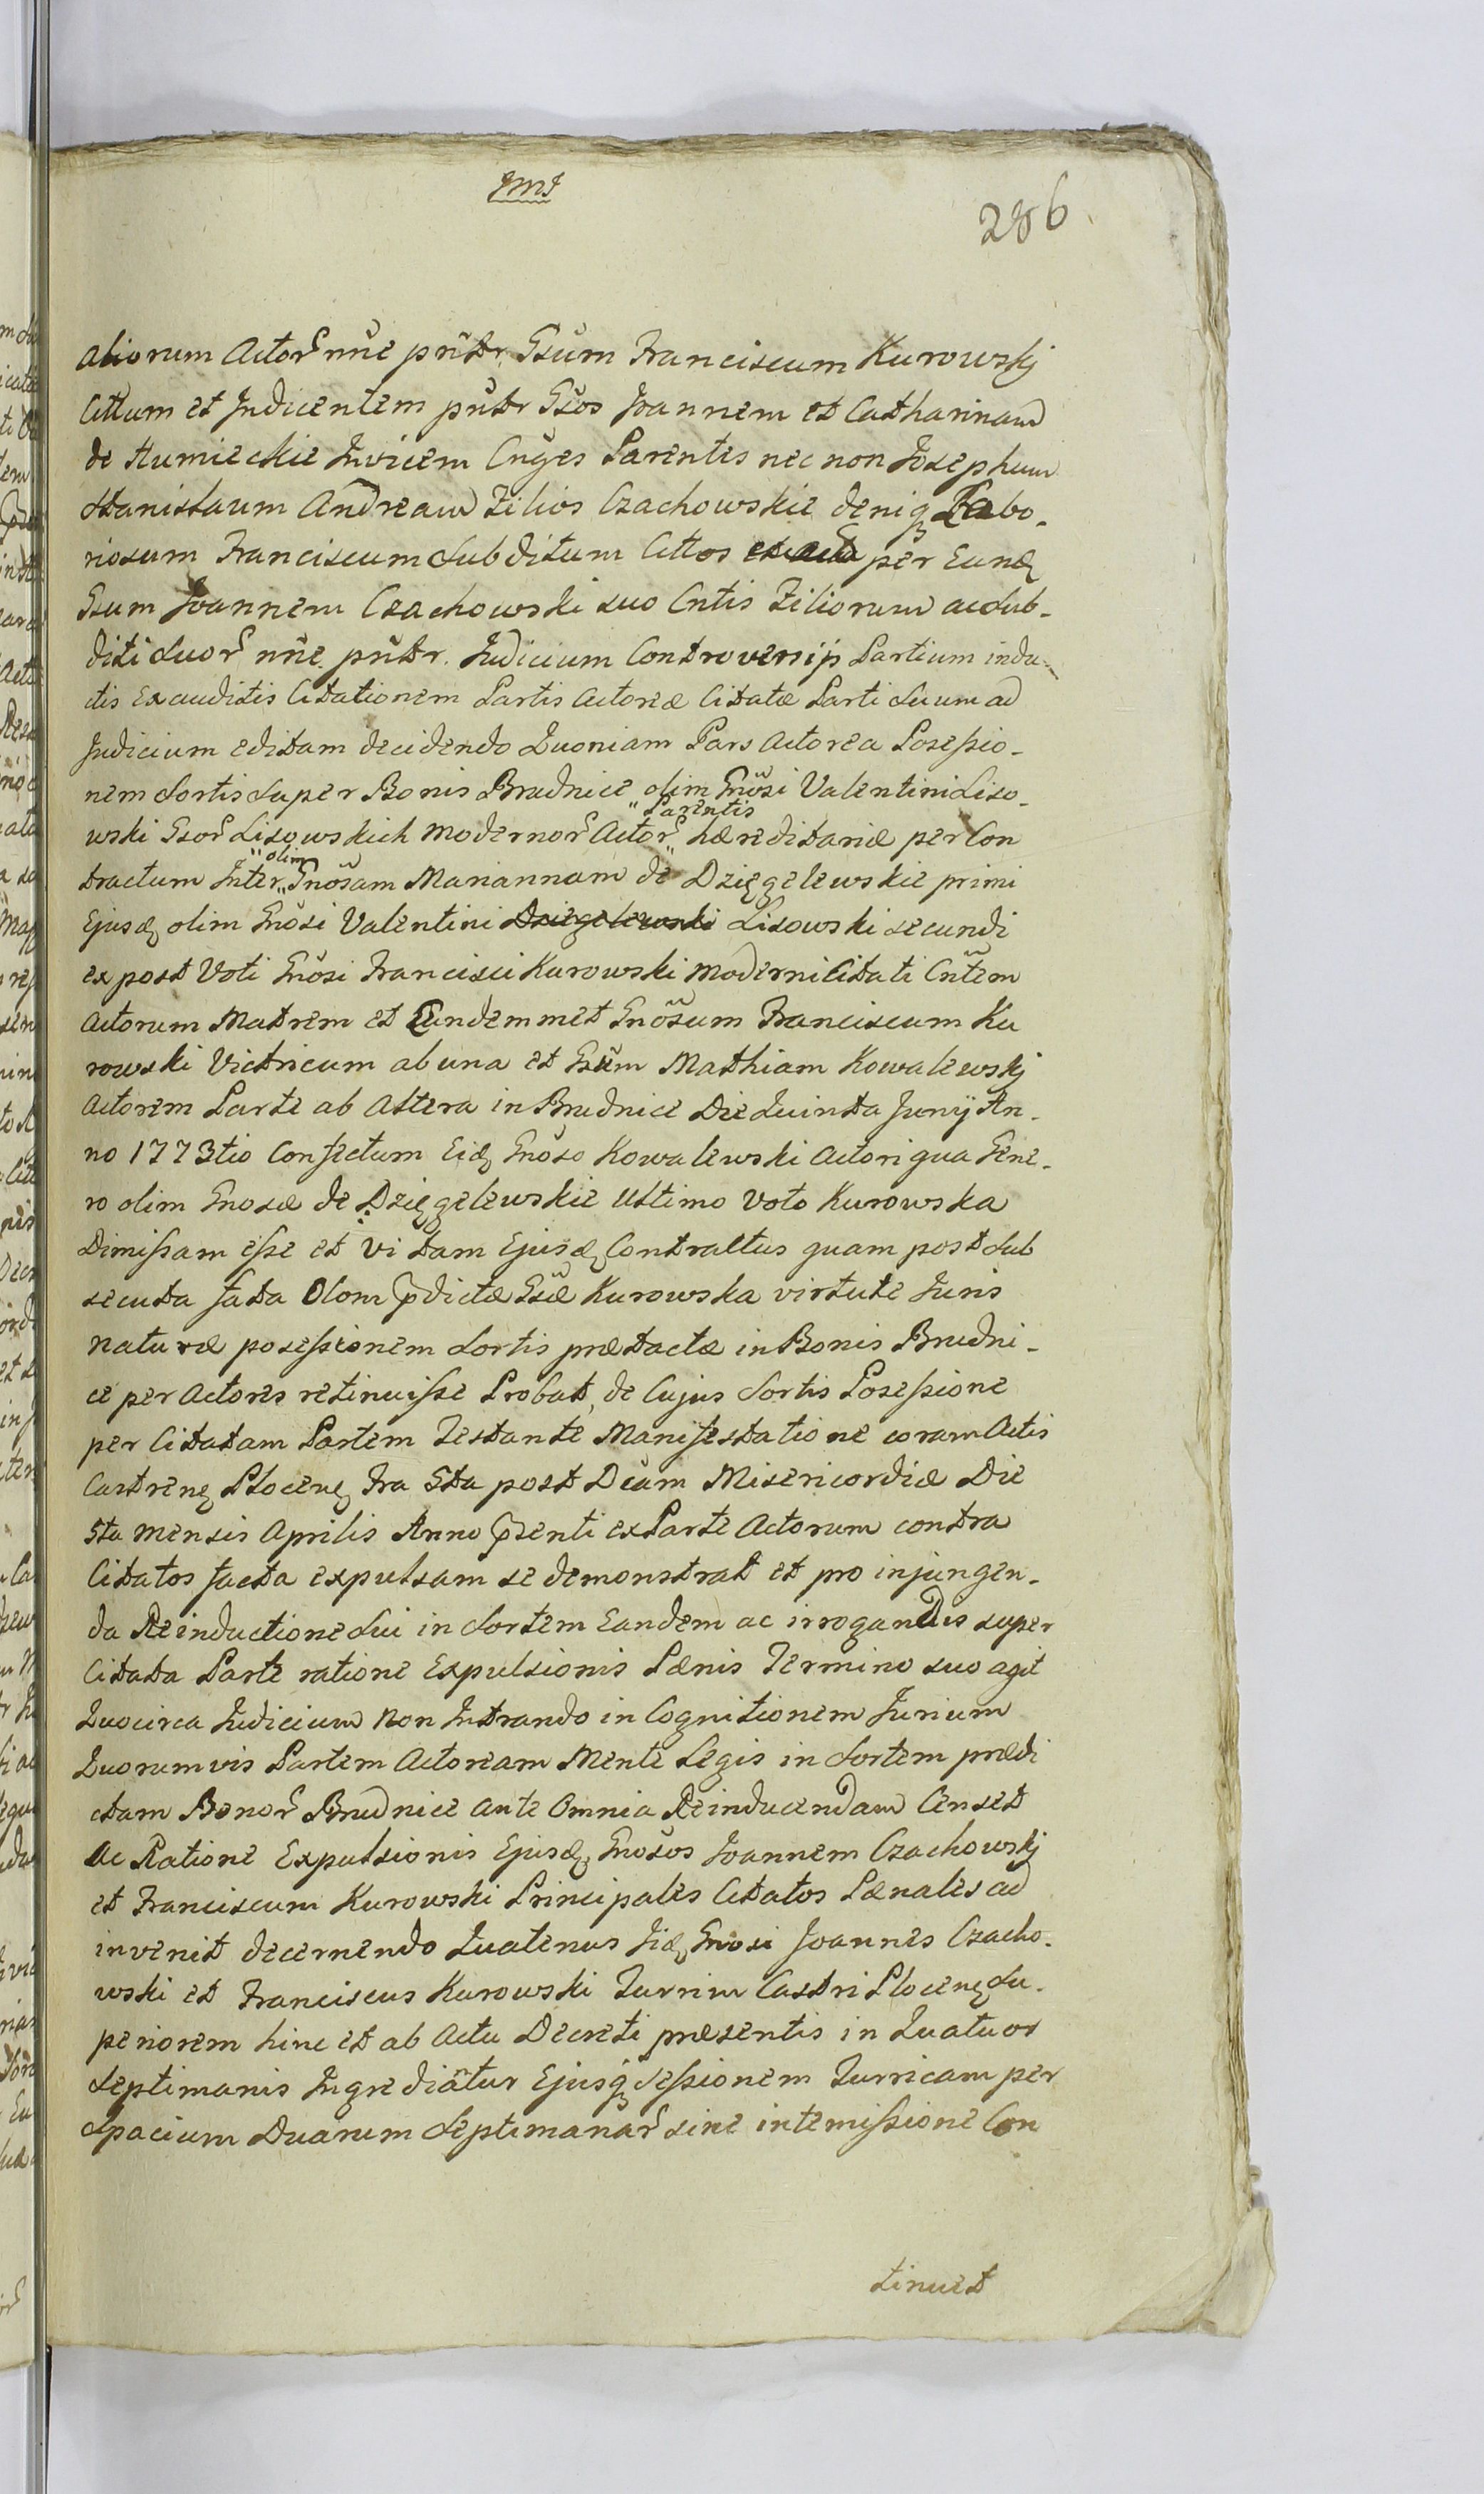 286
aliorum Actor nne pñtr. Gsum Franciscum Kurowskj
Cittum et Judicentem pñtr Gsos Joannem et Catharinam
de Humieckie Invicem Cnges Parentes nec non Josephum
Stanislaum Andream Filios Czachowskie deniq Labo-
riosum Franciscum Subditum Cittos per Eund
Gsum Joannem Czachowski suo Cntis Filiorum ac Sub-
diti Suor nñe pñtr. Judicium Controversijs Partium indu-
ctis Exauditis Citationem Partis Actoreæ Citatæ Parti Suum ad
Judicium editam decidendo Quoniam Pars Actorea Possessio-
nem Sortis Super Bonis Brudnice olim Gnősi Valentini Liso-
" Parentis
wski Gsor Lisowskich modernor Actor " hæreditariæ per Con
" olim
tractum Inter " Gnősam Mariannam de Dzięgelewskie primi
Ejusd olim Gnősi Valentini Dziegelewski Lisowski secundi
ex post Voti Gnősi Francisci Kurowski moderni Citati Cñtem
Actorum Matrem et Eundemmet Gnősum Franciscum Ku
rowski Victricum ab una et Gsum Mathiam Kowalewskj
Actorem Parte ab Altera in Brudnice Die Quinta Junij An-
no 1773tio Confectum Eid Gnőso Kowalewski Actori qua Gene-
ro olim Gnosæ de Dzięgelewskie Ultimo Voto Kurowska
Dimissam esse et Vi tam Ejusd Contraltus quam post Sub
secuta fata Olom pdictæ Gsæ Kurowska virtute Juris
Naturæ posessionem Sortis prætactæ in Bonis Brudni-
ce per Actores retinuisse Probat, de Cujus Sortis Possessione
per Citatam Partem Testante Manifestatione coram Actis
Castren Plocen Fra 5ta post Dcam Misericordiæ Die
5ta Mensis Aprilis Anno psenti ex Parte Actorum contra
Citatos facta expulsam se demonstrat et pro injungen-
da Reinductione Sui in Sortem Eandem ac irrogandis super
Citata Parte ratione Expulsionis Pænis Termino suo agit
Quocirca Judicium Non Intrando in Cognitionem Jurium
Quorumvis Partem Actoream Mente Legis in Sortem prædi
ctam Bonor Brudnice ante Omnia Reinducendam Censet
Ac Ratione Expulsionis Ejusd Gnősos Joannem Czachowskj
et Franciscum Kurowski Principales Citatos Pænales ad
invenit decernendo Quatenus Jid Gnosi Joannes Czacho-
wski et Franciscus Kurowski Turrim Castri Plocen Su-
periorem hinc et ab Actu Decreti præsentis in Quatuor
Septimanis Ingrediãtur Ejusq Sessionem Turricam per
Spacium Duarum Septimanar sine intemissione Con
tinuet